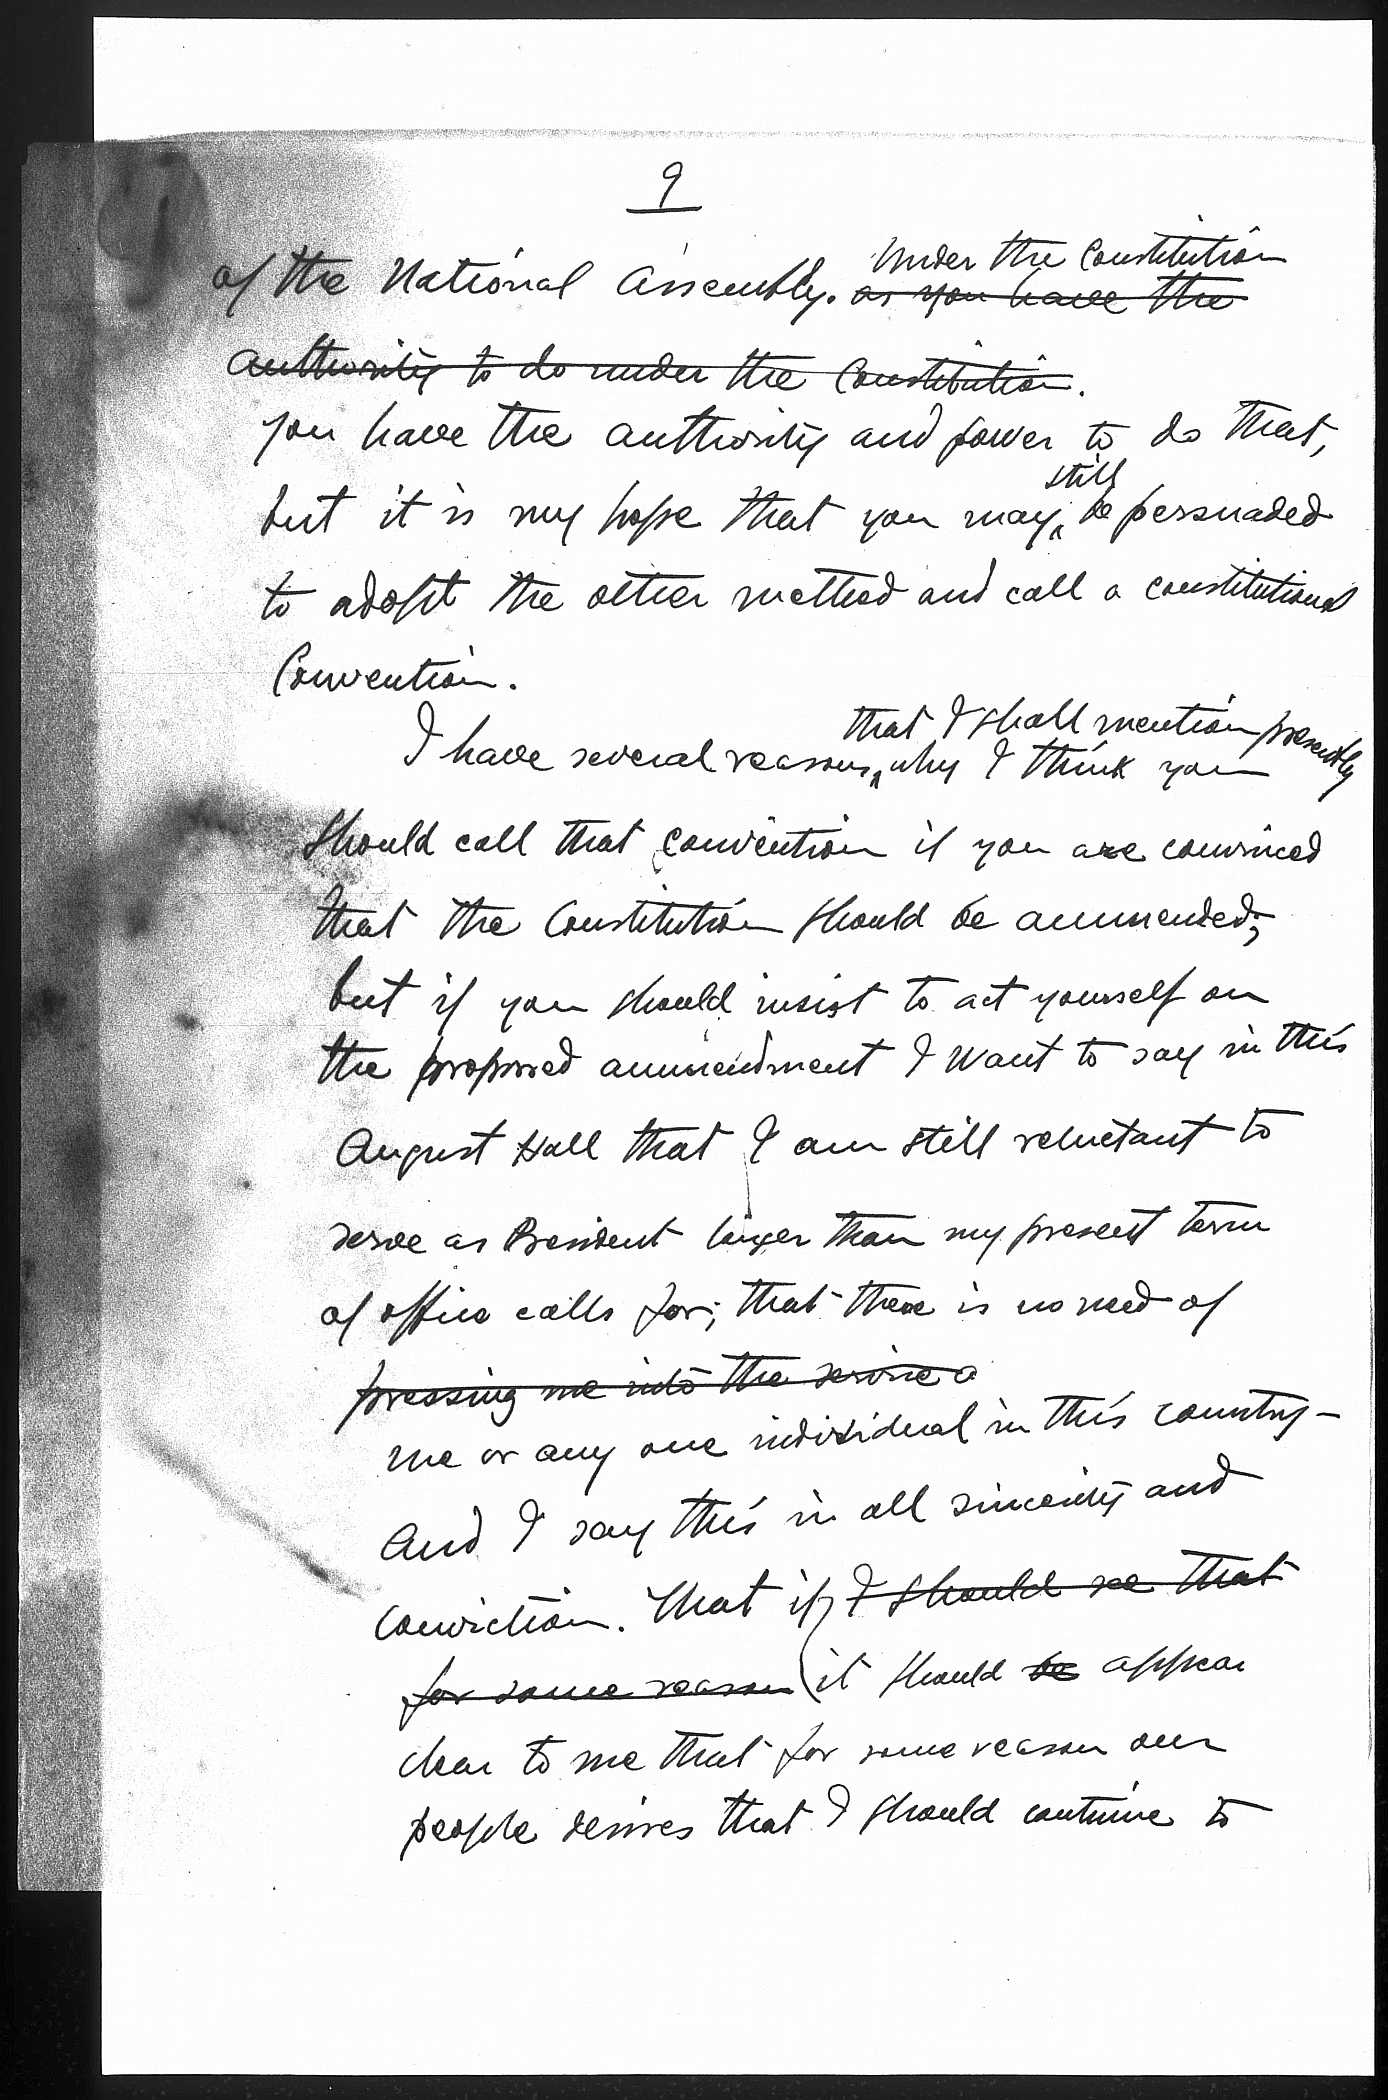 9
Under the Constitution
of the National Assembly. as you have the
authority to do under the Constitution.
you have the authority and power to do that,
still
but it is my hope that you may be persuaded
to adopt the other method and call a constitutional
Convention.
that I shall mention presently
I have several reasons, why I think you
should call that convention if you are convinced
that the Constitution should be ammended;
but if you should insist to act yourself on
the proposed ammendment I want to say in this
August Hall that I am still reluctant to
serve as President longer than my present term
of office calls for; that there is no need of
pressing me into the service a
me or any one individual in this country—
And I say this in all sincerity and
conviction. That if, I should see that
for some reason it should be appear
clear to me that for some reason our
people desires that I should continue to